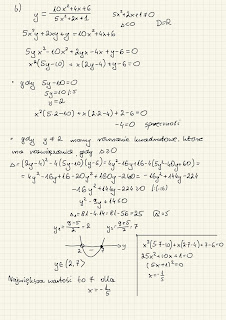 b) y = (10x²+4x+6)/(5x²+2x+1)   5x²+2x+1≠0
Δ<0   D=R
5x²y+2xy+y=10x²+4x+6
5yx²-10x²+2yx-4x+y-6=0
x²(5y-10)+x(2y-4)+y-6=0
• gdy 5y-10=0
5y=10 |:5
y=2
x²(5·2-10)+x(2·2-4)+2-6=0
-4=0 sprzeczność
• gdy y≠2 mamy równanie kwadratowe, które
ma rozwiązania gdy Δ≥0
Δ=(2y-4)²-4(5y-10)(y-6)=4y²-16y+16-4(5y²-40y+60)=
=4y²-16y+16-20y²+160y-240=-16y²+144y-224
-16y²+144y-224≥0 |:(-16)
y²-9y+14≤0
Δ=81-4·14=81-56=25   √Δ=5
y₁=(9-5)/2=2   y₂=(9+5)/2=7
2   7   y
y∈(2,7⟩
Największa wartość to 7 dla
x=-1/5
x²(5·7-10)+x(2·7-4)+7-6=0
25x²+10x+1=0
(5x+1)²=0
x=-1/5